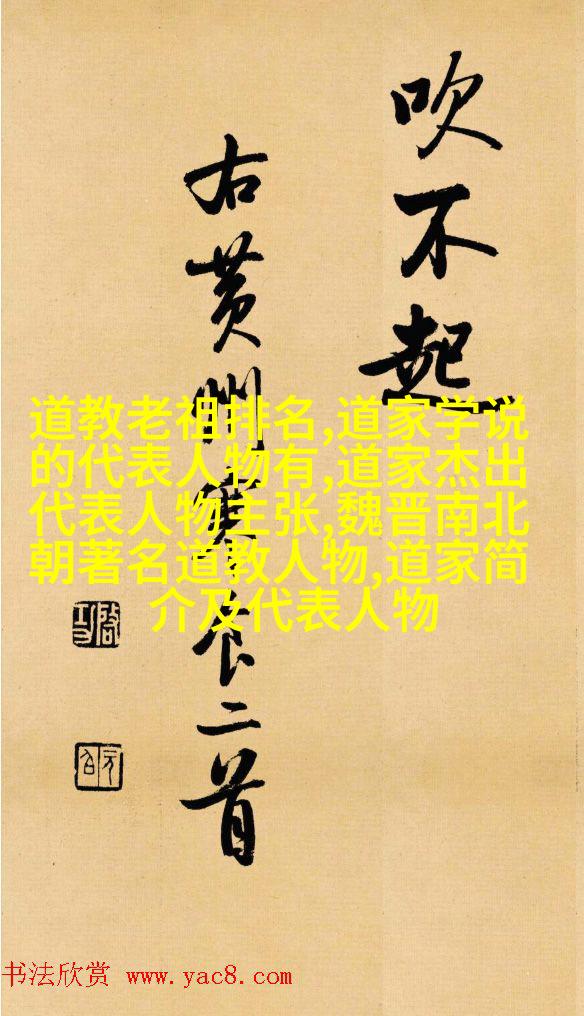 吹不起
右黄州寒食二首
道教老祖排名,道家学说
的代表人物有,道家杰出
代表人物主张,魏晋南北
朝著名道教人物,道家简
介及代表人物
启功
元白
书法欣赏 www.yac8.com